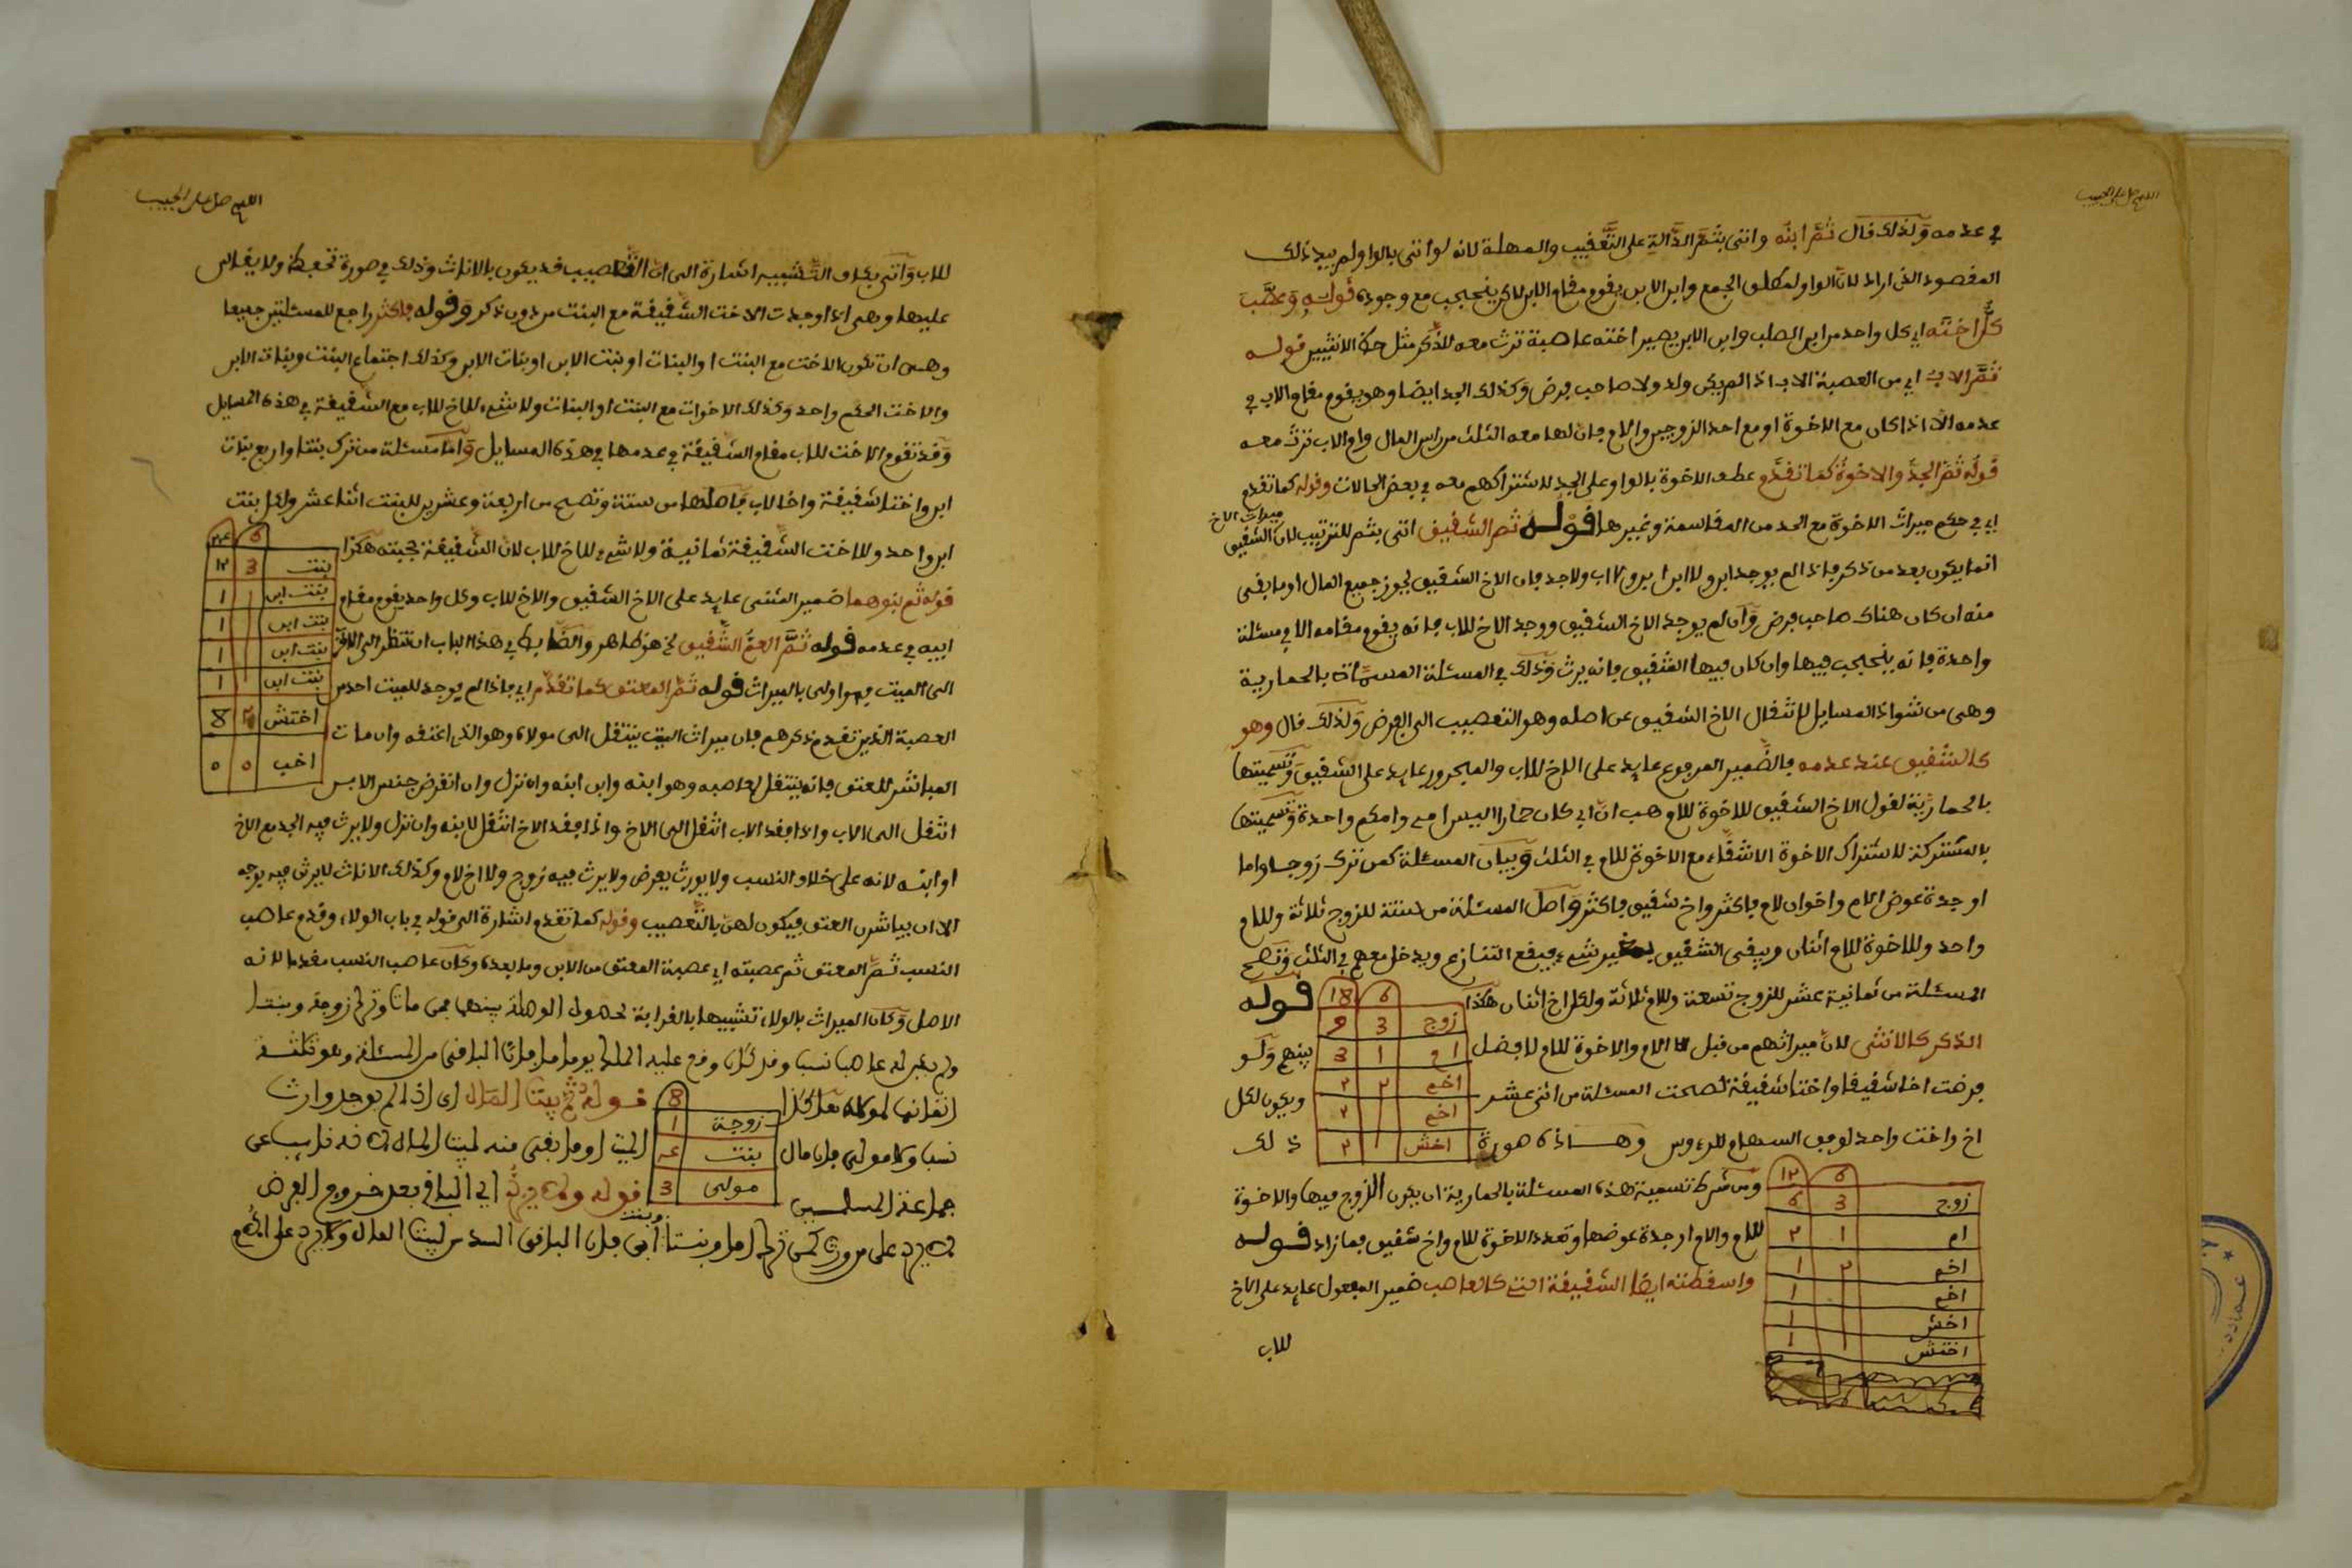 اللهم صل على الحبيب
في عدمه ولذلك قال ثم ابنه واتى بثم الدالة على التعقيب والمهلة لانه لو اتى بالواو لم يفد ذلك
المقصود الذي اراد لان الواو لمطلق الجمع وابن الابن يقوم مقام الابن لاكن ينحجب مع وجوده قوله وعصب
كل اخته اي كل واحد من ابن الصلب وابن الابن يصير اخته عاصبة ترث معه للذكر مثل حظ الانثيين قوله
ثم الاب اي من العصبة الاب اذا لم يكن ولد ولا صاحب فرض وكذلك الجد ايضا وهو يقوم مقام الاب في
عدمه الا اذا كان مع الاخوة او مع احد الزوجين والام فان لها معه الثلث من راس المال وام الاب ترث معه
قوله ثم الجد والاخوة كما تقدم عطف الاخوة بالواو على الجد لاشتراكهم معه في بعض الحالات وقوله كما تقدم
اي في حكم ميراث الاخوة مع الجد من المقاسمة وغيرها قوله ثم الشقيق اتى بثم للترتيب لان ميراث الاخ الشقيق
انما يكون بعد من ذكر فاذا لم يوجد ابن ولا ابن ابن ولا اب ولا جد فان الاخ الشقيق يحوز جميع المال او ما بقى
منه ان كان هناك صاحب فرض وان لم يوجد الاخ الشقيق ووجد الاخ للاب فانه يقوم مقامه الا في مسئلة
واحدة فانه ينحجب فيها وان كان فيها الشقيق فانه يرث وذلك في المسئلة المسماة بالحمارية
وهى من شواذ المسايل لانتقال الاخ الشقيق عن اصله وهو التعصيب الى الفرض ولذلك قال وهو
كالشقيق عند عدمه فالضمير المرفوع عايد على الاخ للاب والمجرور عايد على الشقيق وتسميتها
بالحمارية لقول الاخ الشقيق للاخوة للام هب ان ابي كان حمارا اليس امي وامكم واحدة وتسميتها
بالمشتركة لاشتراك الاخوة الاشقاء مع الاخوة للام في الثلث وبيان المسئلة كمن ترك زوجا واما
او جدة عوض الام واخوان لام فاكثر واخ شقيق فاكثر واصل المسئلة من ستة للزوج ثلاثة وللام
واحد وللاخوة للام اثنان ويبقى الشقيق بغير شيء فيقع التنازع ويدخل معهم في الثلث وتصح
المسئلة من ثمانية عشر للزوج تسعة وللام ثلاثة ولكل اخ اثنان هكذا قوله
6 18
زوج 3 9
ام 1 3
اخم ٢ ٢
اخم ٢
اخش ٢
الذكر كالانثى لان ميراثهم من قبل الام والاخوة للام لا فضل بينهم ولو
فرضت اخا شقيقا واختا شقيقة لصحت المسئلة من اثنى عشر ويكون لكل
اخ واخت واحد لوفق السهام للرءوس وهذه صورة ذلك
6 ١٢
زوج 3 6
ام ١ ٢
اخم ٢ ١
اخم ١
اخش ١
اختش ١
ومن شرط تسمية هذه المسئلة بالحمارية ان يكون الزوج فيها والاخوة
للام والام او جدة عوضها وتعدد الاخوة للام واخ شقيق فما زاد قوله
واسقطته ايضا الشقيقة التي كالعاصب ضمير المفعول عايد على الاخ
للاب
اللهم صل على الحبيب
للاب واتى بكاف التشبيه اشارة الى ان التعصيب قد يكون بالاناث وذلك في صورة تحفظ ولا يقاس
عليها وهى اذا وجدت الاخت الشقيقة مع البنت من دون ذكر وقوله فاكثر راجع للمسئلتين جميعا
وهى ان تكون الاخت مع البنت او البنات او بنت الابن او بنات الابن وكذلك اجتماع البنت وبنات الابن
والاخت الحكم واحد وكذلك الاخوات مع البنت او البنات ولا شيء للاخ للاب مع الشقيقة في هذه المسايل
وقد تقوم الاخت للاب مقام الشقيقة في عدمها في هذه المسايل واما مسئلة من ترك بنتا واربع بنات
ابن واختا شقيقة واخا لاب فاصلها من ستة وتصح من اربعة وعشرين للبنت اثنا عشر ولكل بنت
ابن واحد وللاخت الشقيقة ثمانية ولا شيء للاخ للاب لان الشقيقة حجبته هكذا
6 ٢٤
بنت 3 ١٢
بنت ابن ١ ١
بنت ابن ١
بنت ابن ١
بنت ابن ١
اختش ٢ 8
اخب ٥ ٥
قوله ثم بنوهما ضمير المثنى عايد على الاخ الشقيق والاخ للاب وكل واحد يقوم مقام
ابيه في عدمه قوله ثم العم الشقيق الخ هو ظاهر والضابط في هذا الباب ان تنظر الى الاقرب
الى الميت فهو اولى بالميراث قوله ثم المعتق كما تقدم اي فاذا لم يوجد للميت احد من
العصبة الذين تقدم ذكرهم فان ميراث الميت ينتقل الى مولاه وهو الذي اعتقه وان مات
المباشر للعتق فانه ينتقل لعاصبه وهو ابنه وابن ابنه وان نزل وان انقرض جنس الابن
انتقل الى الاب واذا فقد الاب انتقل الى الاخ واذا فقد الاخ انتقل لابنه وان نزل ولا يرث فيه الجد مع الاخ
او ابنه لانه على خلاف النسب ولا يورث بفرض ولا يرث فيه زوج ولا اخ لام وكذلك الاناث لا يرثن فيه بوجه
الا ان يباشرن العتق فيكون لهن بالتعصيب وقوله كما تقدم اشارة الى قوله في باب الولاء وقدم عاصب
النسب ثم المعتق ثم عصبته اي عصبة المعتق من الابن وما بعده وكان عاصب النسب مقدما لانه
الاصل وكان الميراث بالولاء تشبيها بالقرابة لحصول الوصلة بينهما فمن مات وترك زوجة وبنتا
ولم يكن له عاصبا نسبا وقد كان وقع عليه الملك يوما ما فان الباقى من المسئلة وهو ثلثة
8
زوجة ١
بنت ٤
مولى 3
قوله ثم بيت المال اي اذا لم يوجد وارث
نسبا ولا مولى فان مال الميت او ما بقى منه لبيت المال لانه نايب عن
جماعة المسلمين قوله ولا يرد اي الباقى بعد خروج الفرض
لا يرد على من ورث كمن ترك اما وبنتا وبنت ابن فان الباقى السدس لبيت المال ولا يرد على